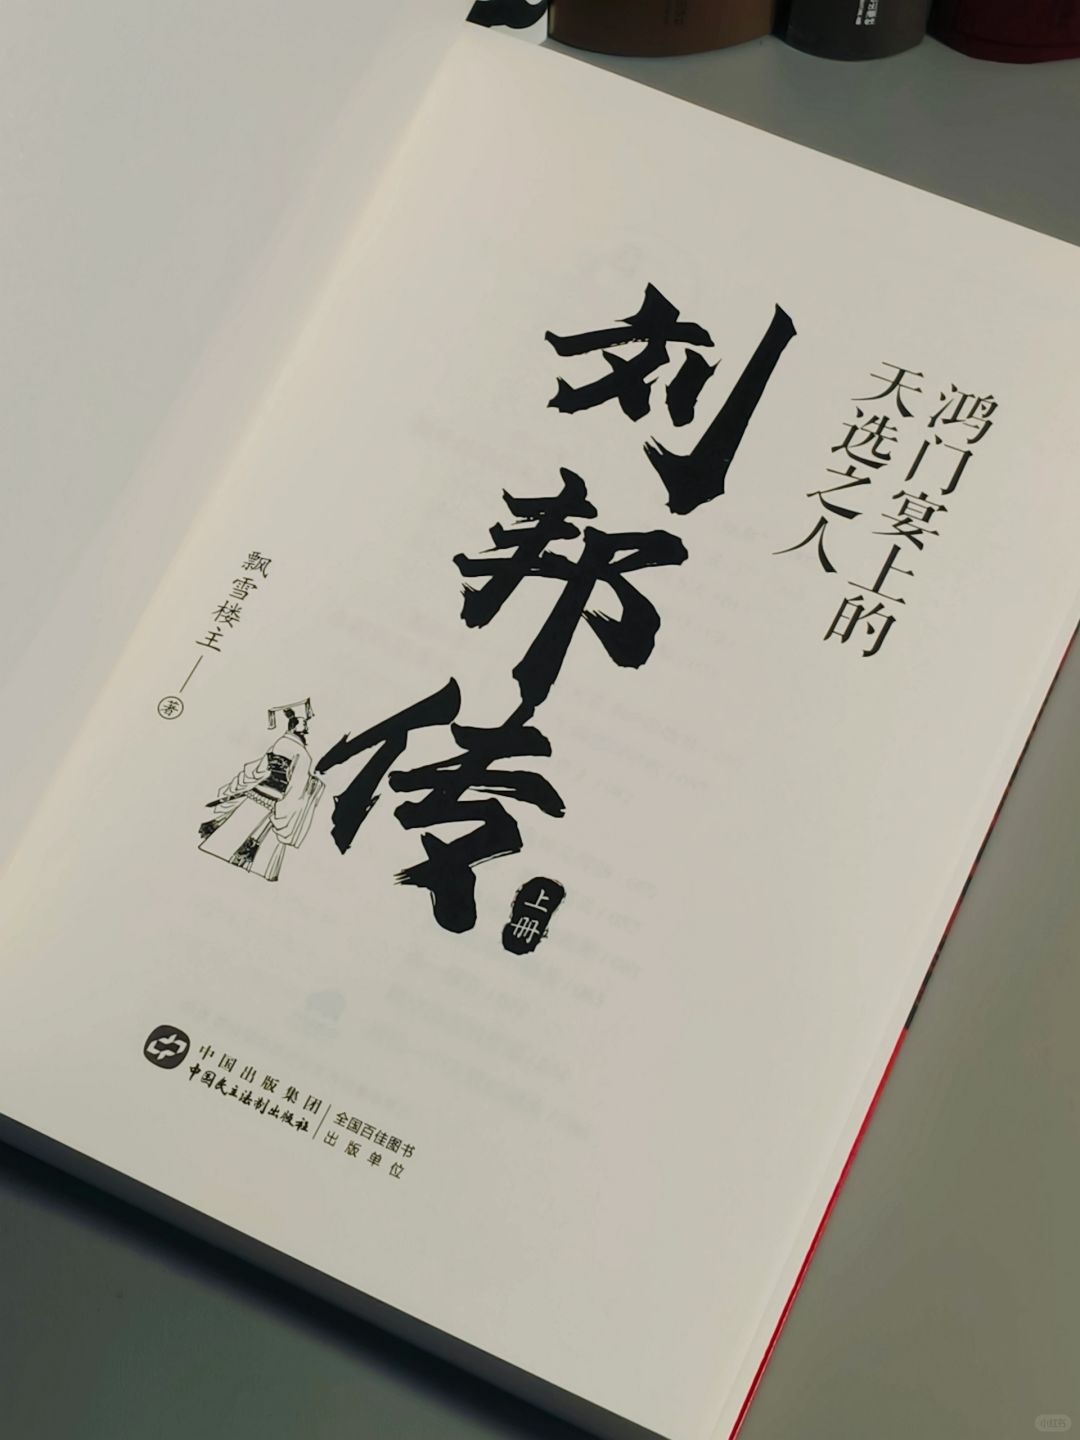 鸿门宴上的
天选之人
刘邦传
上册
飘雪楼主
著
中国出版集团
中国民主法制出版社
全国百佳图书
出版单位
小红书